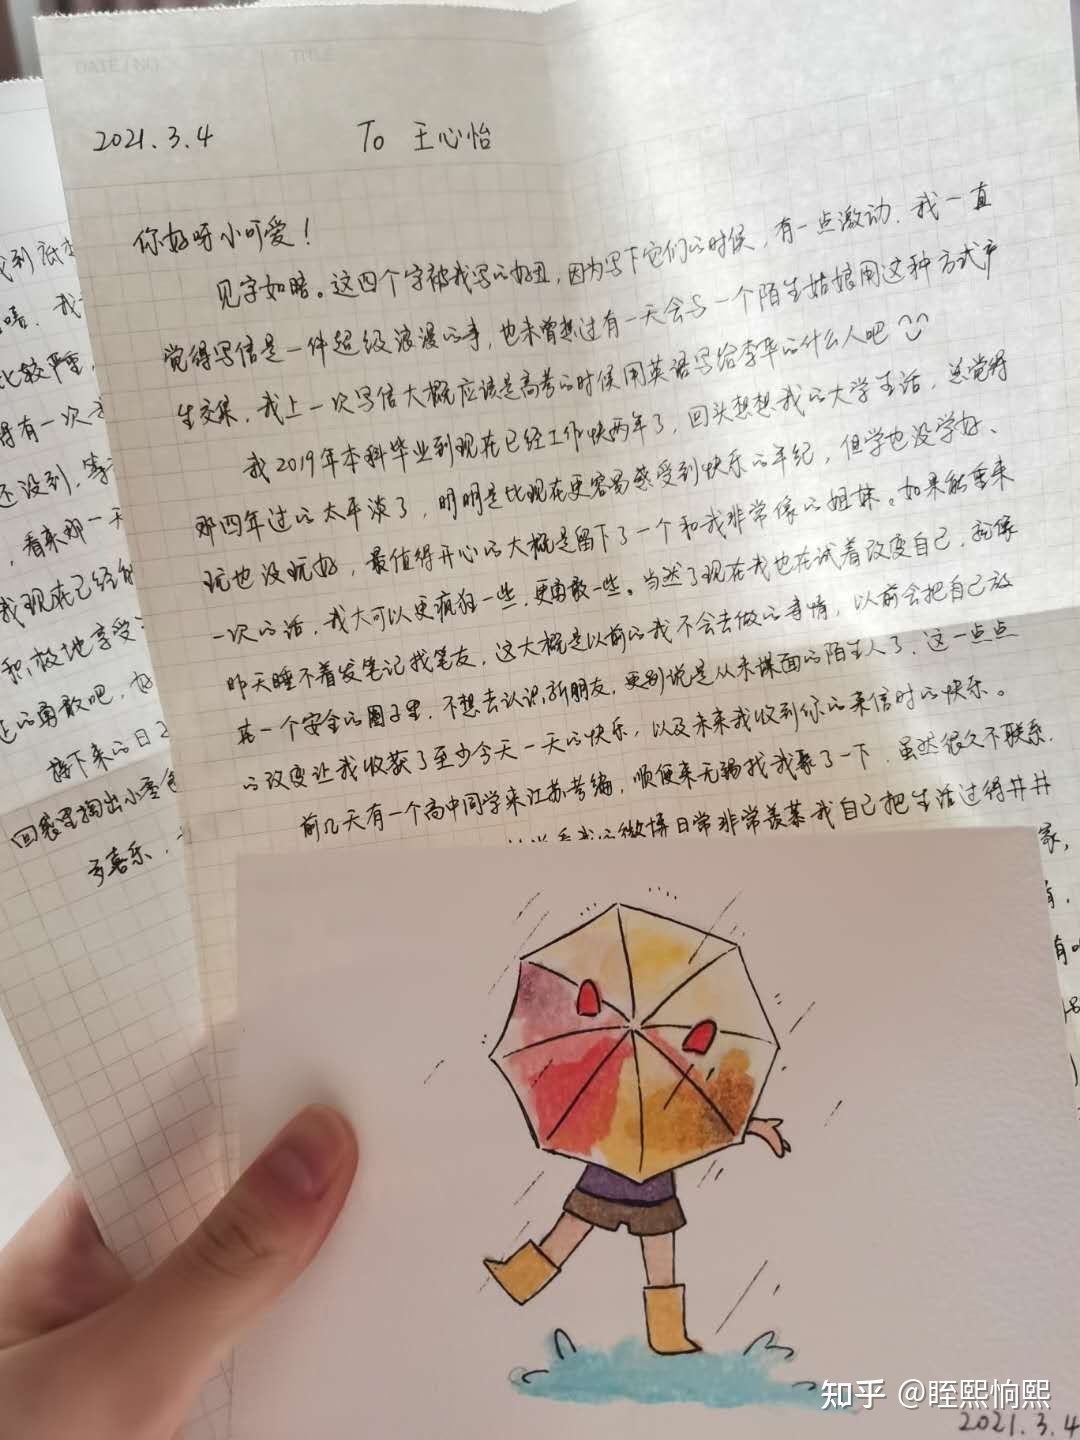 DATE / NO
TITLE
2021.3.4
To 王心怡
你好呀小可爱！
见字如晤。这四个字被我写的好丑，因为写下它们的时候，有一点激动．我一直
觉得写信是一件超级浪漫的事，也未曾想过有一天会与一个陌生姑娘用这种方式产
生交集，我上一次写信大概应该是高考的时候用英语写给李华的什么人吧
我2019年本科毕业到现在已经工作快两年了，回头想想我的大学生活，总觉得
那四年过的太平淡了，明明是比现在更容易感受到快乐的年纪，但学也没学好、
玩也没玩好，最值得开心的大概是留下了一个和我非常像的姐妹。如果能重来
一次的话，我大可以更疯狂一些，更勇敢一些。当然了现在我也在试着改变自己，就像
昨天睡不着发笔记找笔友，这大概是以前的我不会去做的事情，以前会把自己放
在一个安全的圈子里，不想去认识新朋友，更别说是从未谋面的陌生人了，这一点点
的改变让我收获了至少今天一天的快乐，以及未来我收到你的来信时的快乐。
前几天有一个高中同学来江苏考编，顺便来无锡找我聚了一下，虽然很久不联系，
看我的微博日常非常羡慕我自己把生活过得井井
家，
有，
找到
嗒．我
比较严重，
得有一次
还没到，等
，看来那一天
我现在已经
积极地享受
的勇敢吧，
接下来的日子
回我里掏出小
多喜乐，
2021.3.4
知乎 @眰熙恦熙